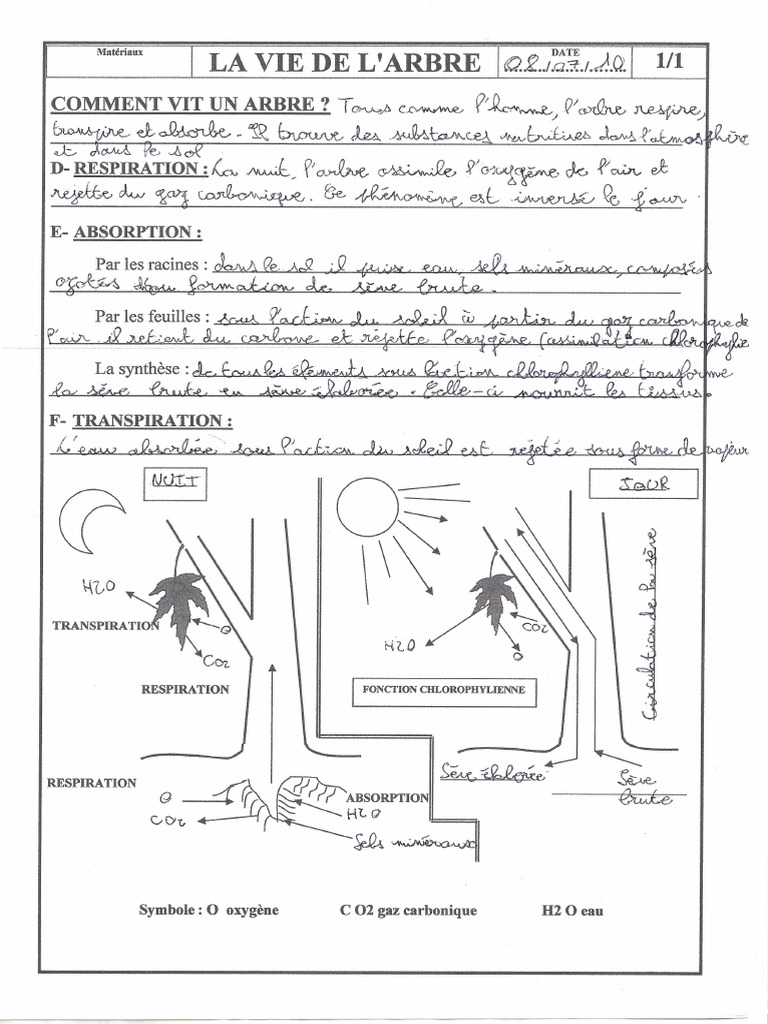 Matériaux
LA VIE DE L'ARBRE
DATE
08/07/10
1/1
COMMENT VIT UN ARBRE ? Tous comme l'homme, l'arbre respire,
transpire et absorbe. Il trouve des substances nutritives dans l'atmosphère
et dans le sol
D- RESPIRATION : La nuit, l'arbre assimile l'oxygène de l'air et
rejette du gaz carbonique. Ce phénomène est inversé le jour
E- ABSORPTION :
Par les racines : dans le sol il puise eau, sels minéraux, composés
azotés formation de sève brute.
Par les feuilles : sous l'action du soleil à partir du gaz carbonique de
l'air il retient du carbone et rejette l'oxygène (assimilation chlorophylie
La synthèse : de tous les éléments sous l'action chlorophylliene transforme
la sève brute en sève élaborée. Celle-ci nourrit les tissus.
F- TRANSPIRATION :
L'eau absorbée sous l'action du soleil est rejetée sous forme de vapeur
NUIT
JOUR
H2O
TRANSPIRATION
O
CO2
RESPIRATION
H2O
CO2
O
FONCTION CHLOROPHYLIENNE
Circulation de la sève
RESPIRATION
O
CO2
ABSORPTION
H2O
Sels minéraux
Sève élaborée
Sève
brute
Symbole : O oxygène C O2 gaz carbonique H2 O eau